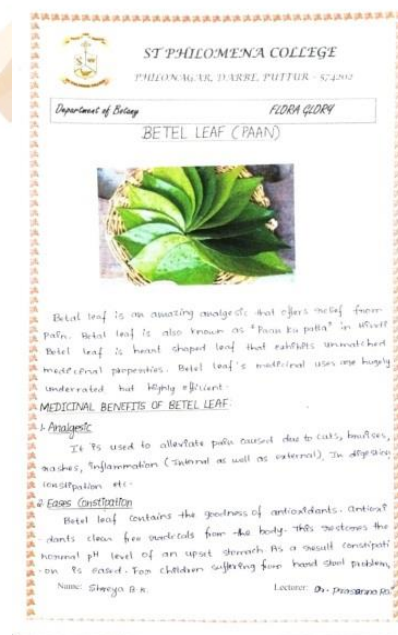 ST PHILOMENA COLLEGE
PHILONAGAR, DARBE, PUTTUR - 574202
Department of Botany FLORA GLORY
BETEL LEAF (PAAN)
Betal leaf is an amazing analgesic that offers relief from
pain. Betal leaf is also known as "Paan ka patta" in Hindi
Betel leaf is heart shaped leaf that exhibits unmatched
medicinal properties. Betel leaf's medicinal uses are hugely
underrated but highly efficient.
MEDICINAL BENEFITS OF BETEL LEAF:
1. Analgesic
It is used to alleviate pain caused due to cuts, bruises,
rashes, inflammation (internal as well as external), In digestion
constipation etc.
2. Eases Constipation
Betel leaf contains the goodness of antioxidants. Antioxi
dants clear free radicals from the body. This restores the
normal pH level of an upset stomach. As a result constipati
-on is eased. For children suffering from hard stool problem,
Name: Shreya B.K. Lecturer: Dr. Prasanna Rai